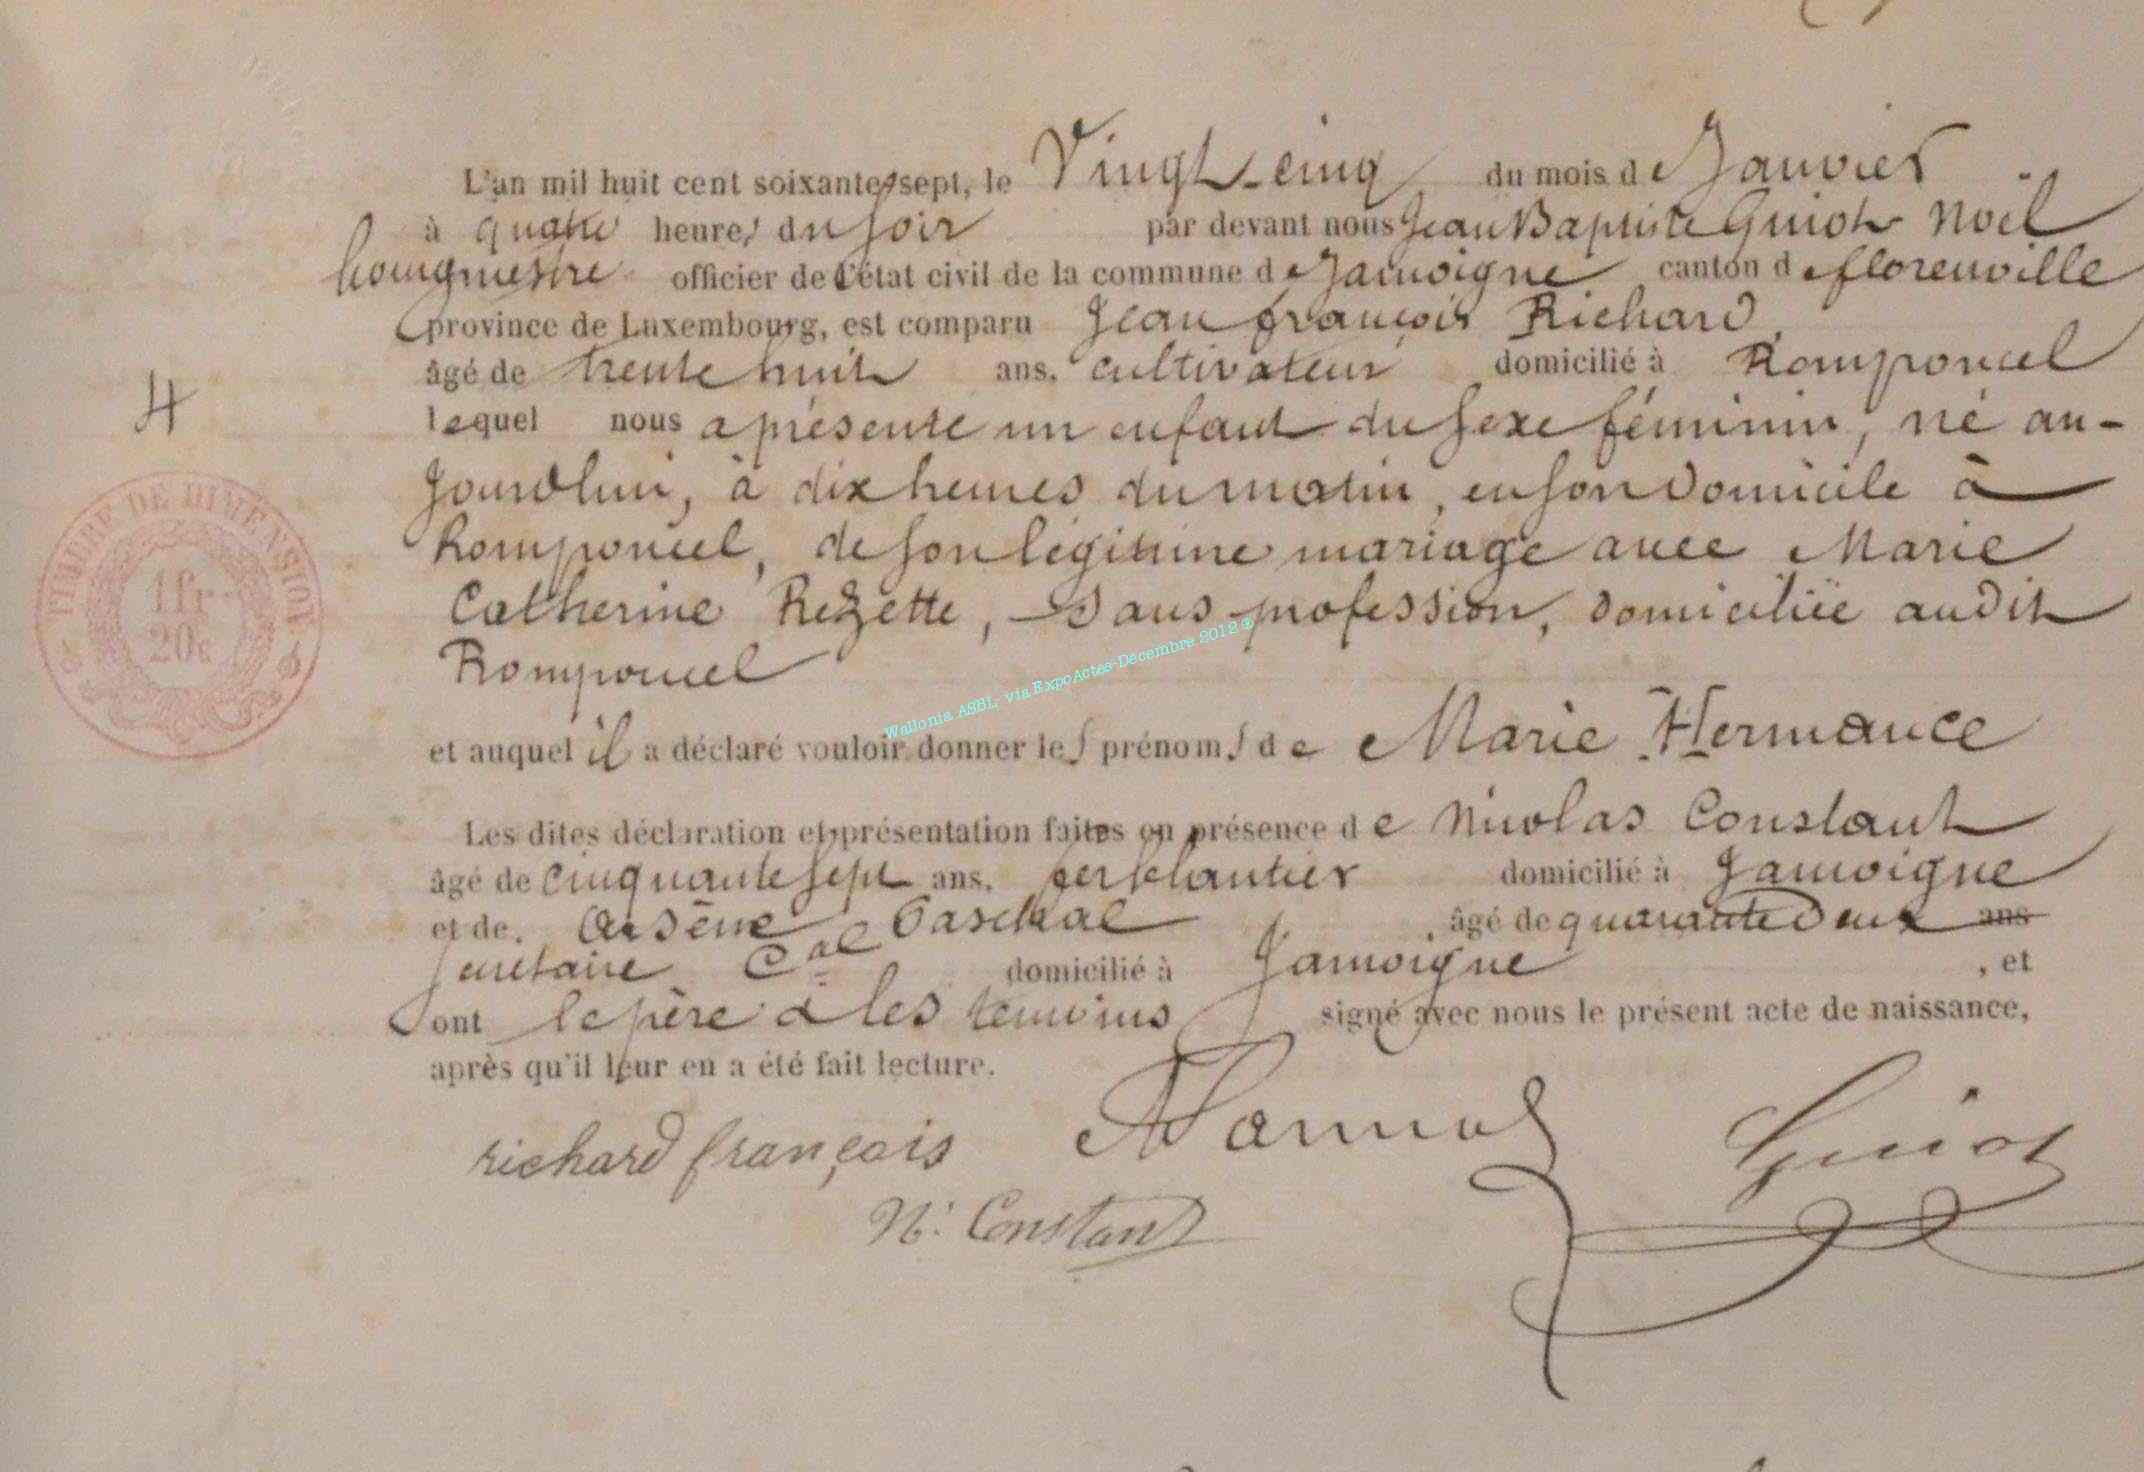 L'an mil huit cent soixante-sept, le Vingt-cinq du mois de Janvier
à quatre heures du soir par devant nous Jean Baptiste Guiot Noël
bourgmestre officier de l'état civil de la commune de Jamoigne canton de florenville
province de Luxembourg, est comparu Jean françois Richard,
âgé de trente huit ans, cultivateur domicilié à Romponcel
lequel nous a présenté un enfant du sexe féminin, né au-
jourdhui, à dix heures du matin, en son domicile à
Romponcel, de son légitime mariage avec Marie
Catherine Rezette, Sans profession, domiciliée audit
Romponcel
et auquel il a déclaré vouloir donner les prénoms de Marie Hermance
Les dites déclaration et présentation faites en présence de Nicolas Constant
âgé de cinquante sept ans, ferblantier domicilié à Jamoigne
et de Arsène âgé de quarante deux ans
secrétaire Cal domicilié à Jamoigne, et
ont le père & les témoins signé avec nous le présent acte de naissance,
après qu'il leur en a été fait lecture.
richard françois Guiot
N. Constant
4
TIMBRE DE DIMENSION
1 fr
20c
Wallonia ASBL, via ExpoActes-Decembre 2012 ®